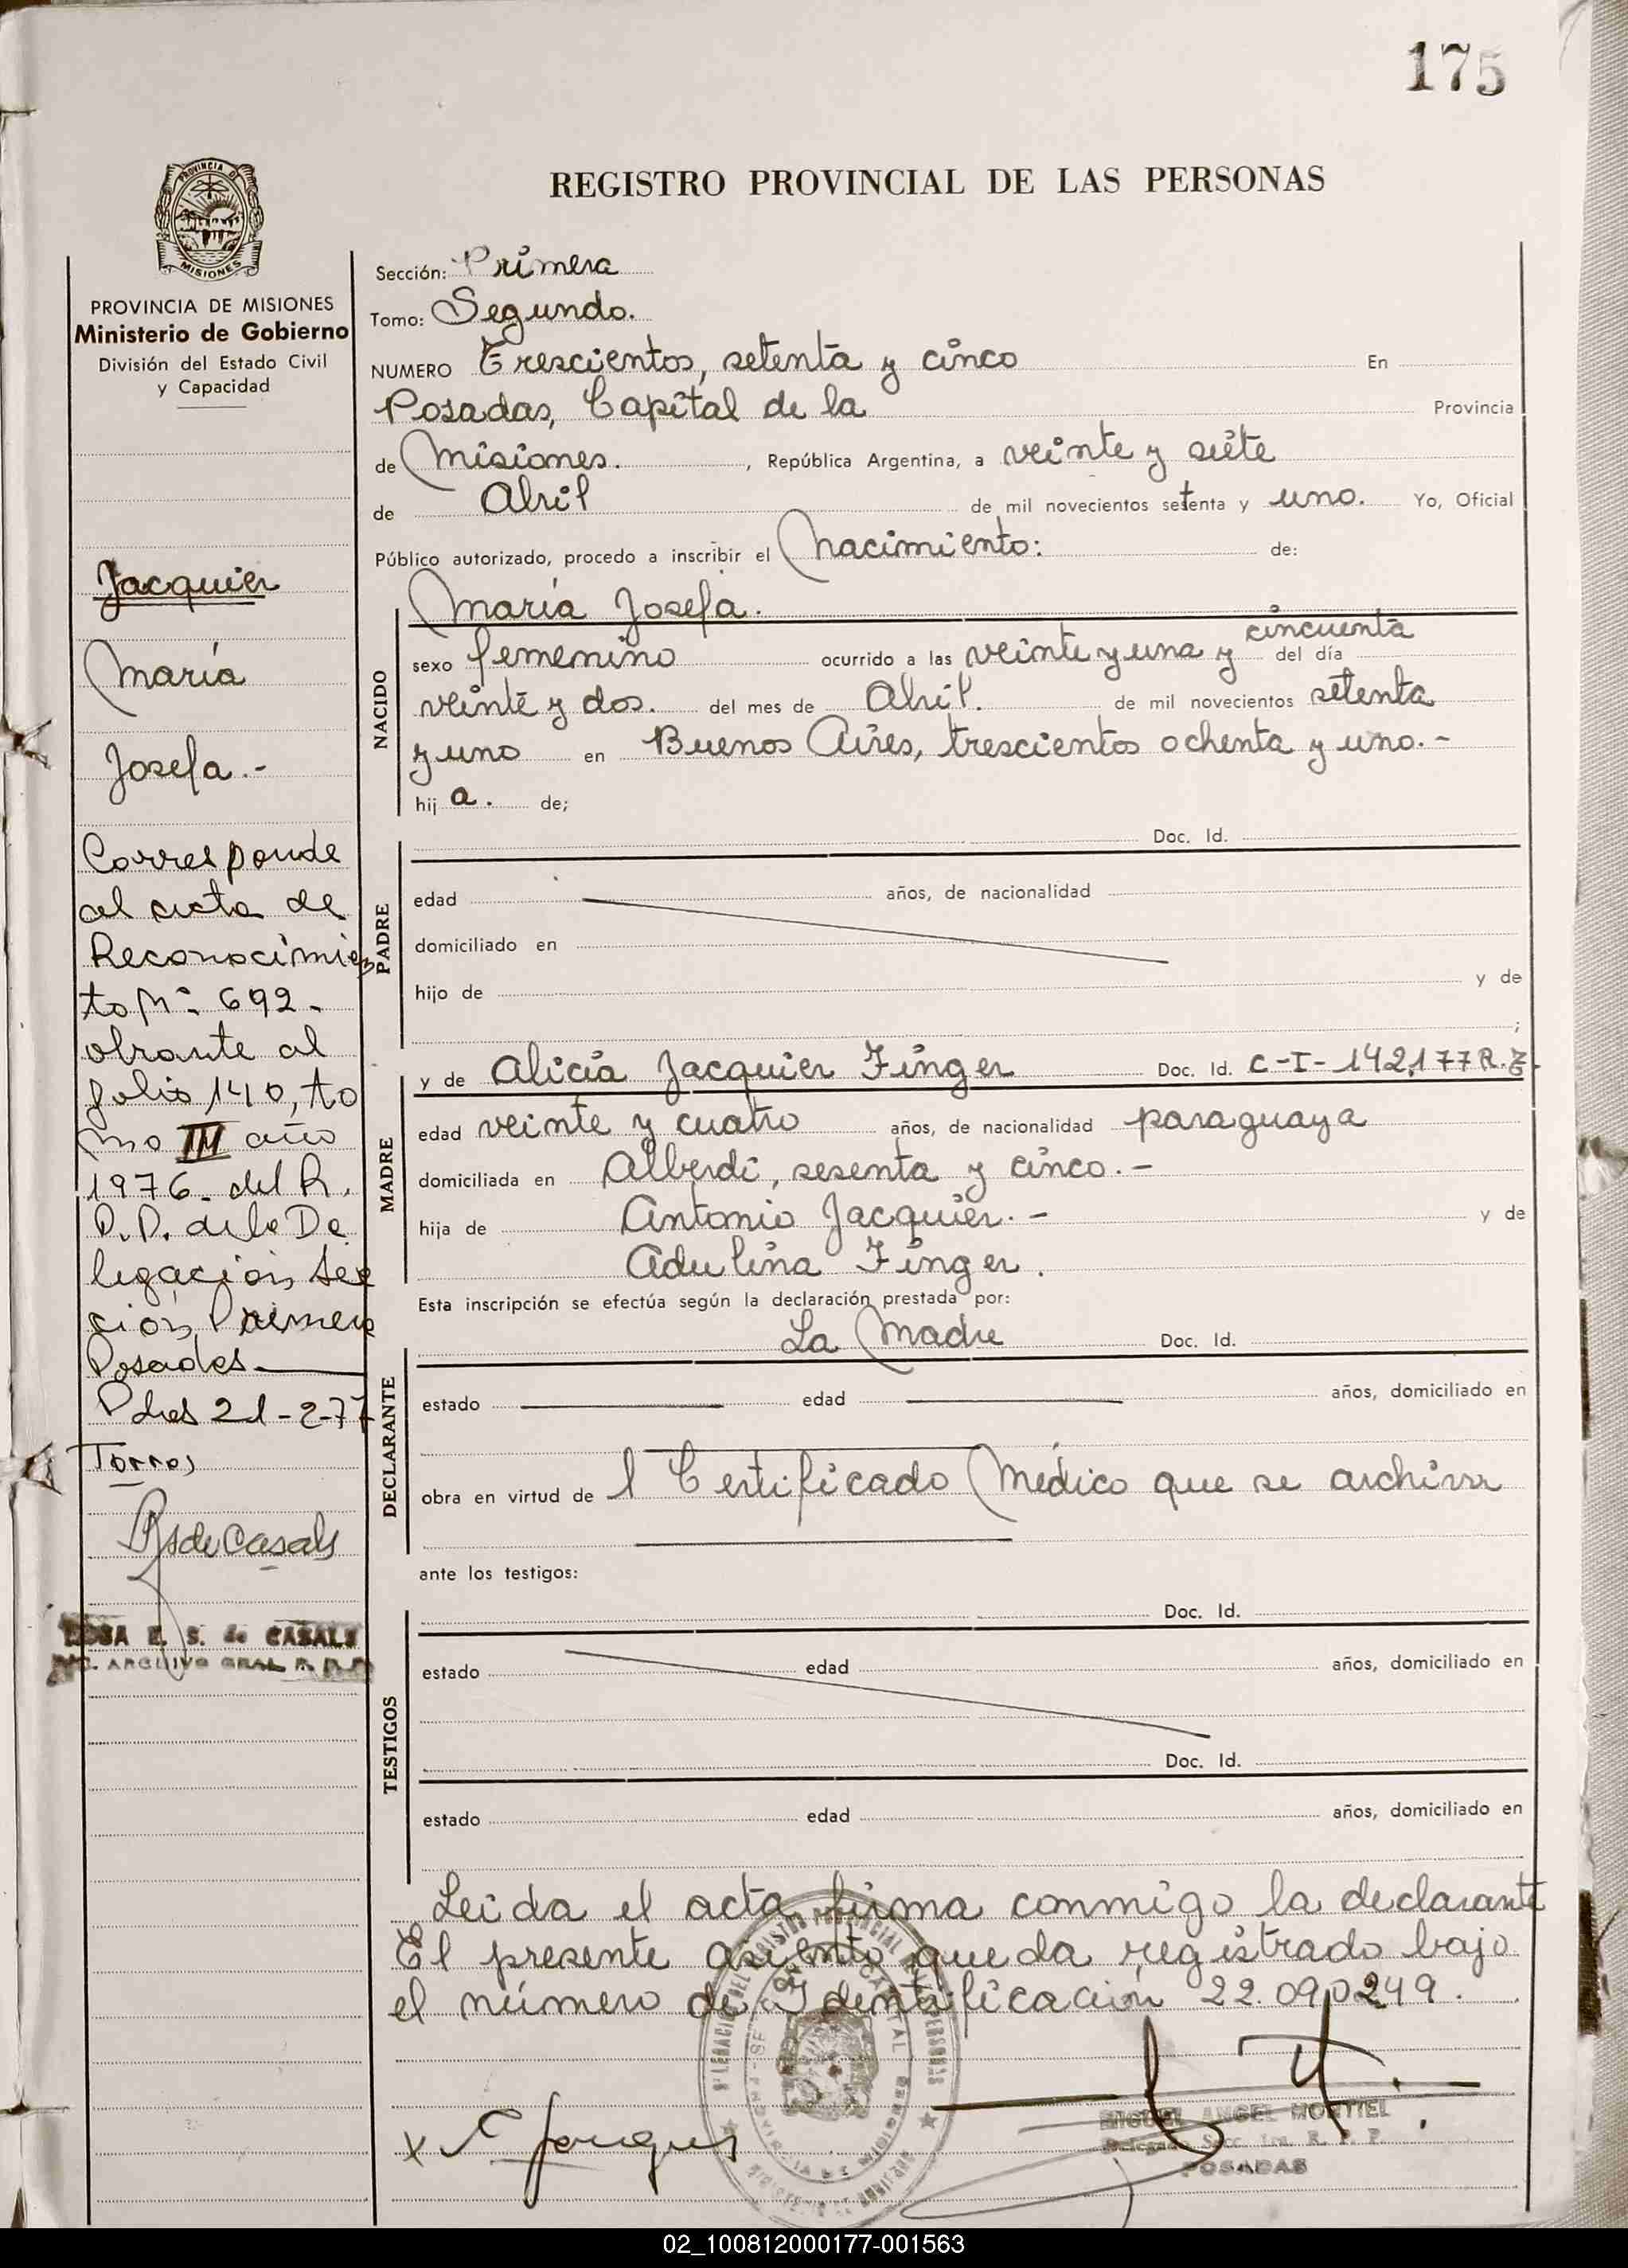 175
REGISTRO PROVINCIAL DE LAS PERSONAS
PROVINCIA DE
MISIONES
PROVINCIA DE MISIONES
Ministerio de Gobierno
División del Estado Civil
y Capacidad
Jacquier
María
Josefa.-
Corresponde
al acta de
Reconocimien
to Nº 692-
obrante al
folio 140, to
mo III año
1976- del R.
P.P. de la De
legación Sec
ción Primera
Posadas
Pdas 21-2-77
Torres
RsdeCasals
ROSA E. S. de CASALS
ARCHIVO GRAL R. P. P.
Sección: Primera
Tomo: Segundo.
NUMERO Trescientos, setenta y cinco En
Posadas, Capital de la Provincia
de Misiones. , República Argentina, a veinte y siete
de Abril de mil novecientos setenta y uno. Yo, Oficial
Público autorizado, procedo a inscribir el Nacimiento: de:
NACIDO
María Josefa.
sexo femenino ocurrido a las veinte y una y cincuenta del día
veinte y dos. del mes de Abril. de mil novecientos setenta
y uno en Buenos Aires, trescientos ochenta y uno.-
hij a. de;
PADRE
Doc. Id.
edad años, de nacionalidad
domiciliado en
hijo de y de
;
MADRE
y de Alicia Jacquier Finger Doc. Id. C-I-142,177 R.E.
edad veinte y cuatro años, de nacionalidad paraguaya
domiciliada en Alberdi, sesenta y cinco.-
hija de Antonio Jacquier.- y de
Adulina Finger.
Esta inscripción se efectúa según la declaración prestada por:
DECLARANTE
La Madre Doc. Id.
estado edad años, domiciliado en
obra en virtud de l Certificado Médico que se archiva
ante los testigos:
TESTIGOS
Doc. Id.
estado edad años, domiciliado en
Doc. Id.
estado edad años, domiciliado en
Leida el acta firma conmigo la declarante
El presente asiento queda registrado bajo
el número de Identificación 22.090249.
x
MIGUEL ANGEL MONTIEL
Delegado Secc. 1ra. R. P. P.
POSADAS
02_100812000177-001563